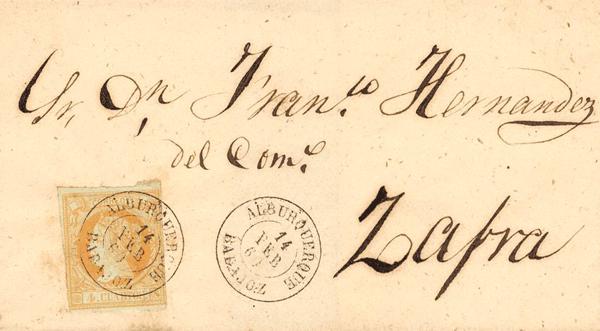 Sr. Dn. Fran.co Hernandez
del Com.o
Zafra
ALBURQUERQUE
14
FEB
BADAJOZ
4 CUARTOS
ALBURQUERQUE
14
FEB
BADAJOZ